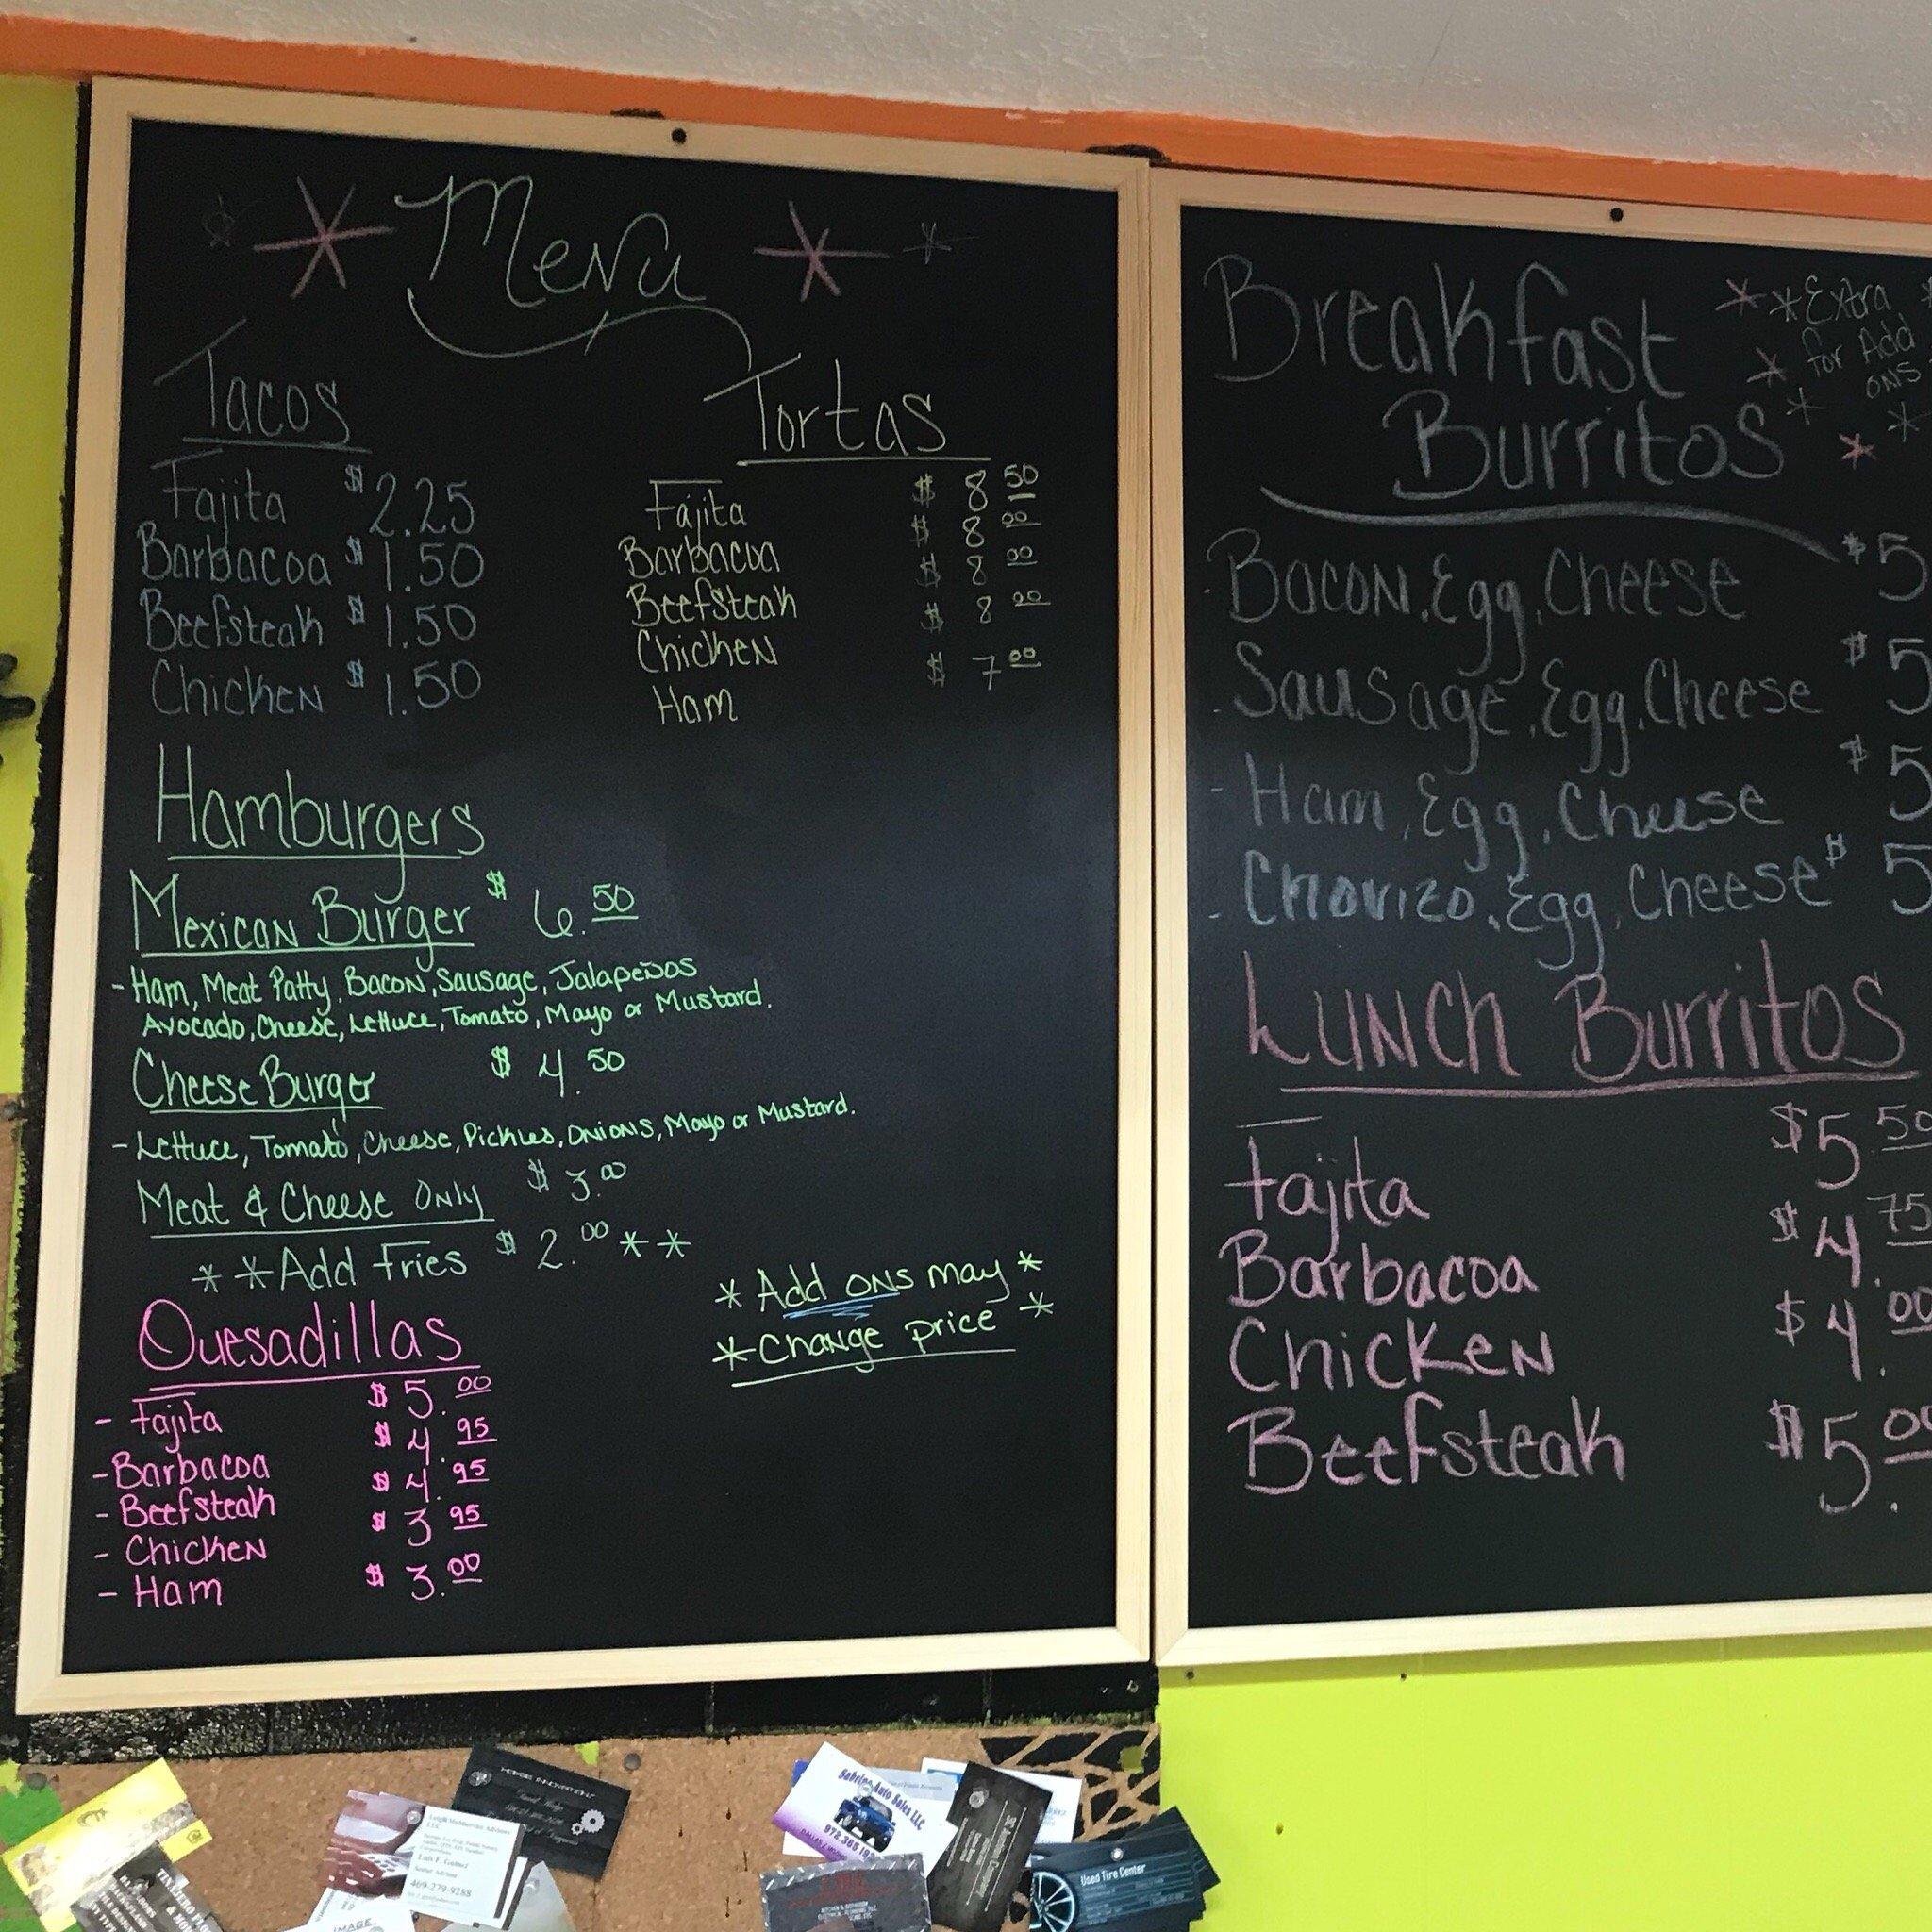 Menu
Tacos
Fajita $2.25
Barbacoa $1.50
Beefsteak $1.50
Chicken $1.50
Tortas
Fajita $8 50
Barbacoa $8 00
Beefsteak $8 00
Chicken $8 00
Ham $7 00
Hamburgers
Mexican Burger $6.50
- Ham, Meat Patty, Bacon, Sausage, Jalapeños
Avocado, Cheese, Lettuce, Tomato, Mayo or Mustard.
Cheese Burger $4.50
- Lettuce, Tomato, Cheese, Pickles, Onions, Mayo or Mustard.
Meat & Cheese Only $3.00
**Add Fries $2.00**
*Add ons may*
*Change price*
Quesadillas
- Fajita $5.00
- Barbacoa $4.95
- Beefsteak $4.95
- Chicken $3 95
- Ham $3.00
Breakfast
Burritos
*Extra
for Add
ons
- Bacon, Egg, Cheese $5
- Sausage, Egg, Cheese $5
- Ham, Egg, Cheese $5
- Chorizo, Egg, Cheese $5
Lunch Burritos
Fajita $5 50
Barbacoa $4.75
Chicken $4.00
Beefsteak $5.00
Sabrina Auto Sales LLC
Luis F. Gomez
469-279-9288
IMAGE
Used Tire Center